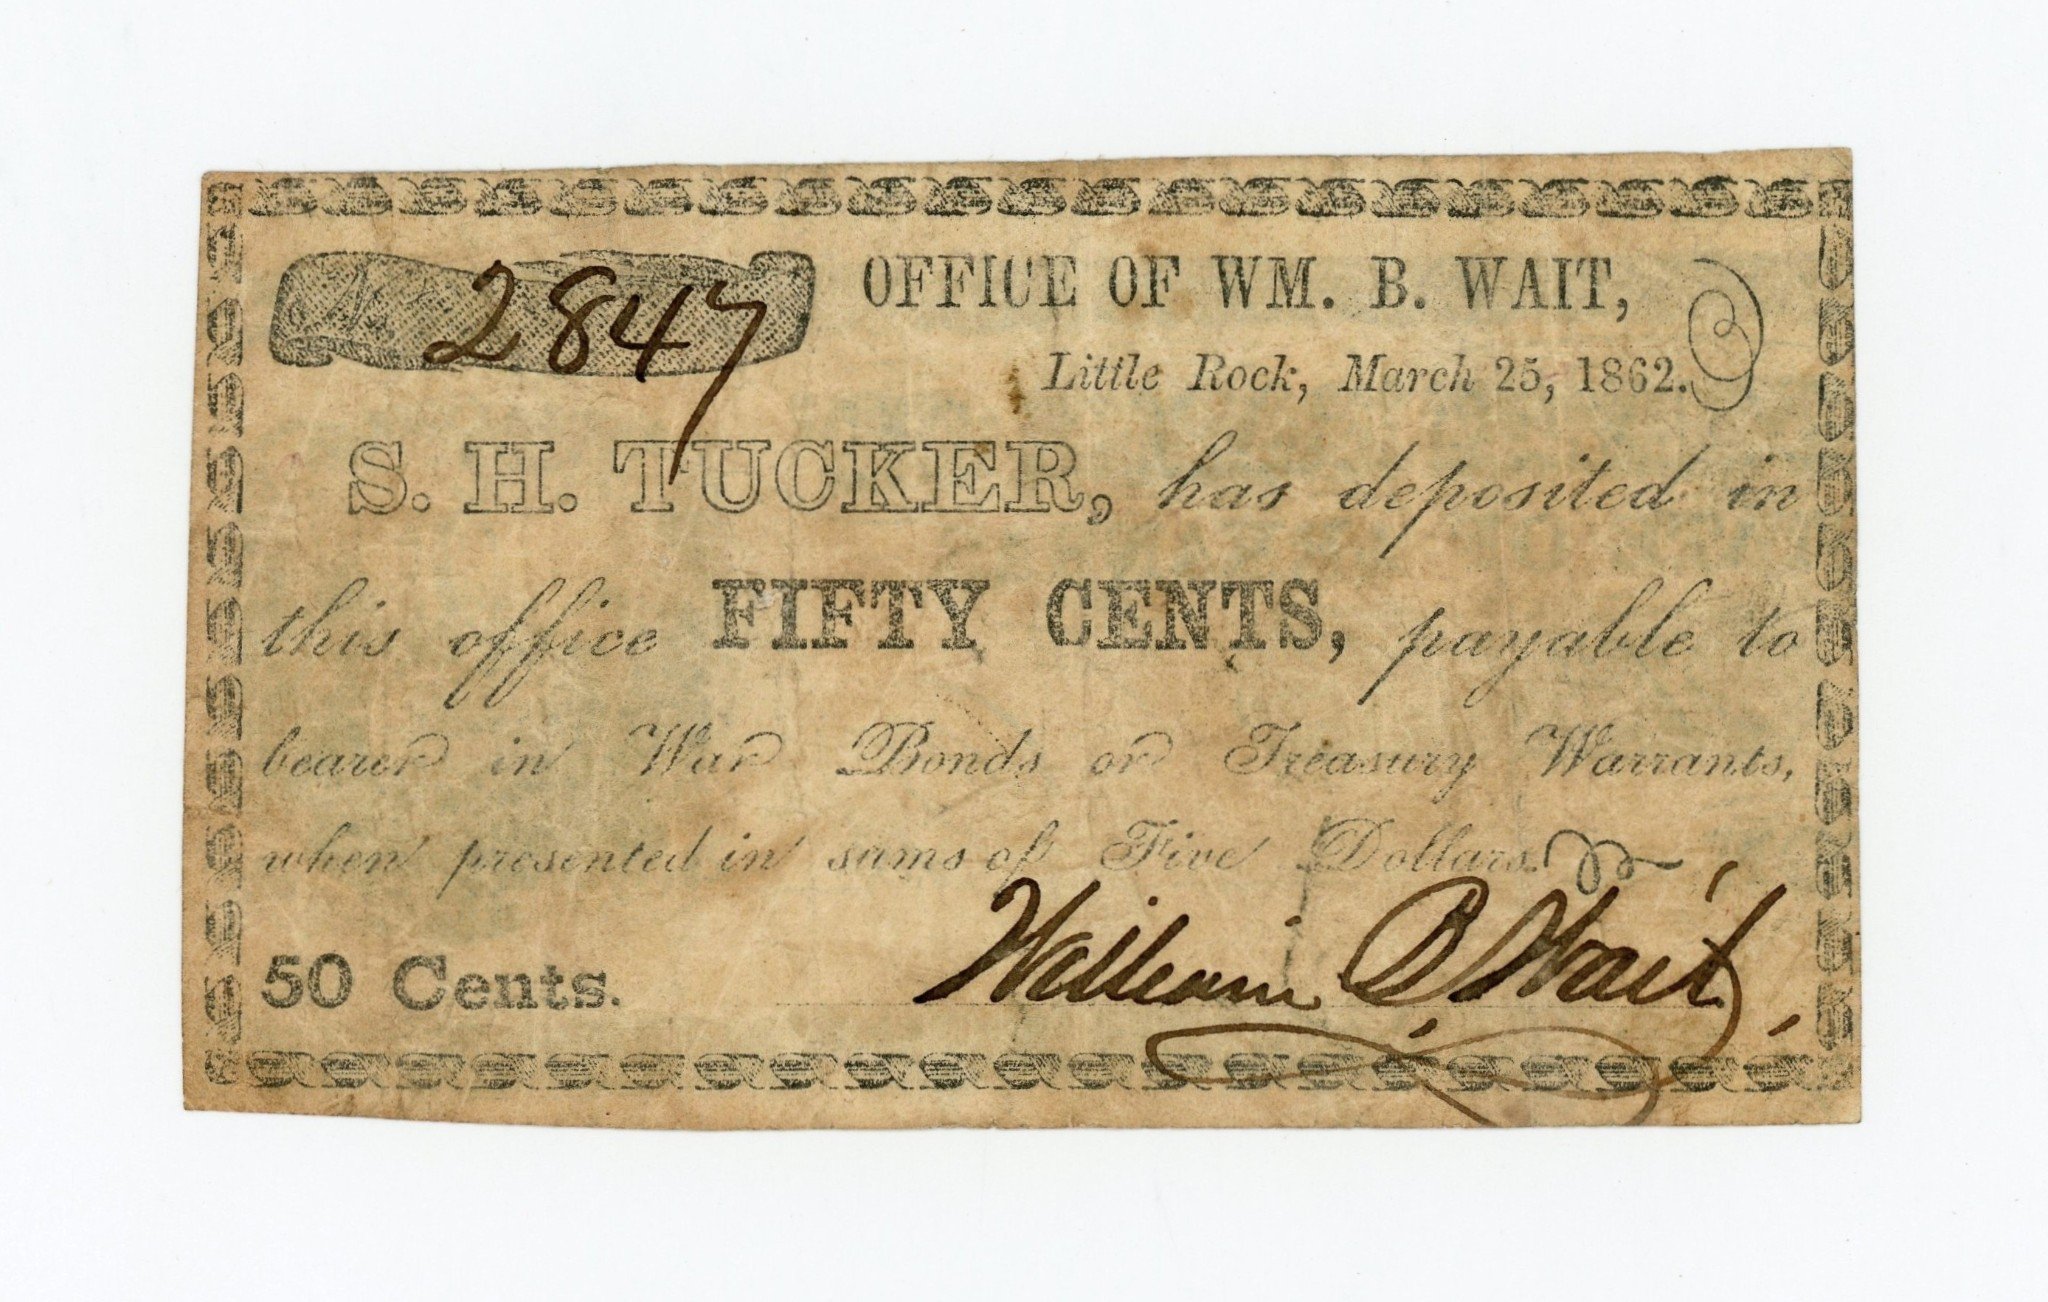 No. 2847
OFFICE OF WM. B. WAIT,
Little Rock, March 25, 1862.
S. H. TUCKER, has deposited in
this office FIFTY CENTS, payable to
bearer in War Bonds or Treasury Warrants,
when presented in sums of Five Dollars.
50 Cents. William B Wait